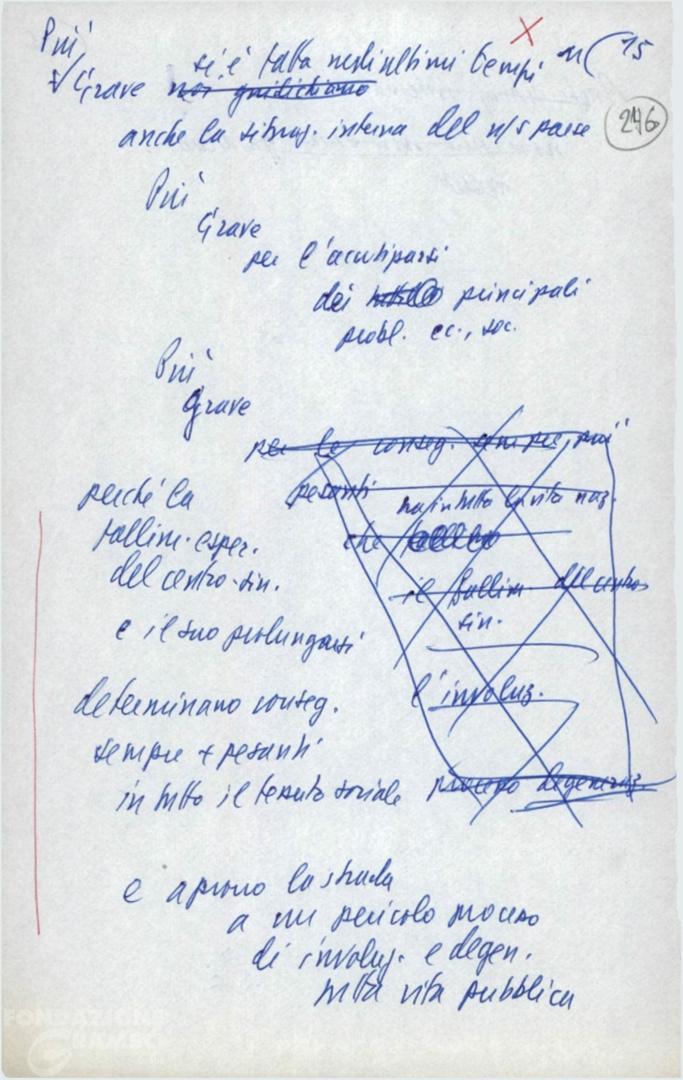 Più
si è fatta negli ultimi tempi 15
Grave noi giudichiamo
anche la situaz. interna del n/s paese
246
Più
Grave
per l'acutizzarsi
dei principali
probl. ec., soc.
Più
grave
per le conseg. sempre più
pesanti
in tutta la vita naz.
che
il fallim. del centro
sin.
l'involuz.
processo degeneraz.
perché la
fallim. esper.
del centro-sin.
e il suo prolungarsi
determinano conseg.
sempre + pesanti
in tutto il tessuto sociale
e aprono la strada
a un pericolo processo
di involuz. e degen.
nella vita pubblica
FONDAZIONE
GRAMSCI